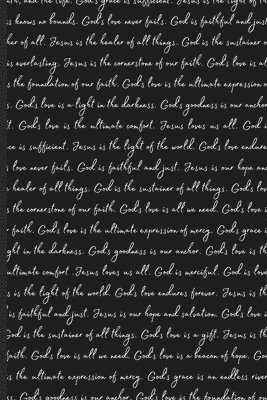 and the life. God's grace is sufficient. Jesus is the light of t
s knows no bounds. God's love never fails. God is faithful and just
her of all. Jesus is the healer of all things. God is the sustainer o
is everlasting. Jesus is the cornerstone of our faith. God's love is al
s the foundation of our faith. God's love is the ultimate expression o
s. God's love is a light in the darkness. God's goodness is our anchor
t. God's love is the ultimate comfort. Jesus loves us all. God i
ce is sufficient. Jesus is the light of the world. God's love endure
s love never fails. God is faithful and just. Jesus is our hope an
e healer of all things. God is the sustainer of all things. God's
s the cornerstone of our faith. God's love is all we need. God's love i
r faith. God's love is the ultimate expression of mercy. God's grace i
ght in the darkness. God's goodness is our anchor. God's love is th
ultimate comfort. Jesus loves us all. God is merciful. God's love is
s is the light of the world. God's love endures forever. Jesus is th
is faithful and just. Jesus is our hope and salvation. God's love i
God is the sustainer of all things. God's love is a gift. Jesus is th
faith. God's love is all we need. God's love is a beacon of hope. Go
is the ultimate expression of mercy. God's grace is an endless river
ss. God's goodness is our anchor. God's love is the foundation of ou